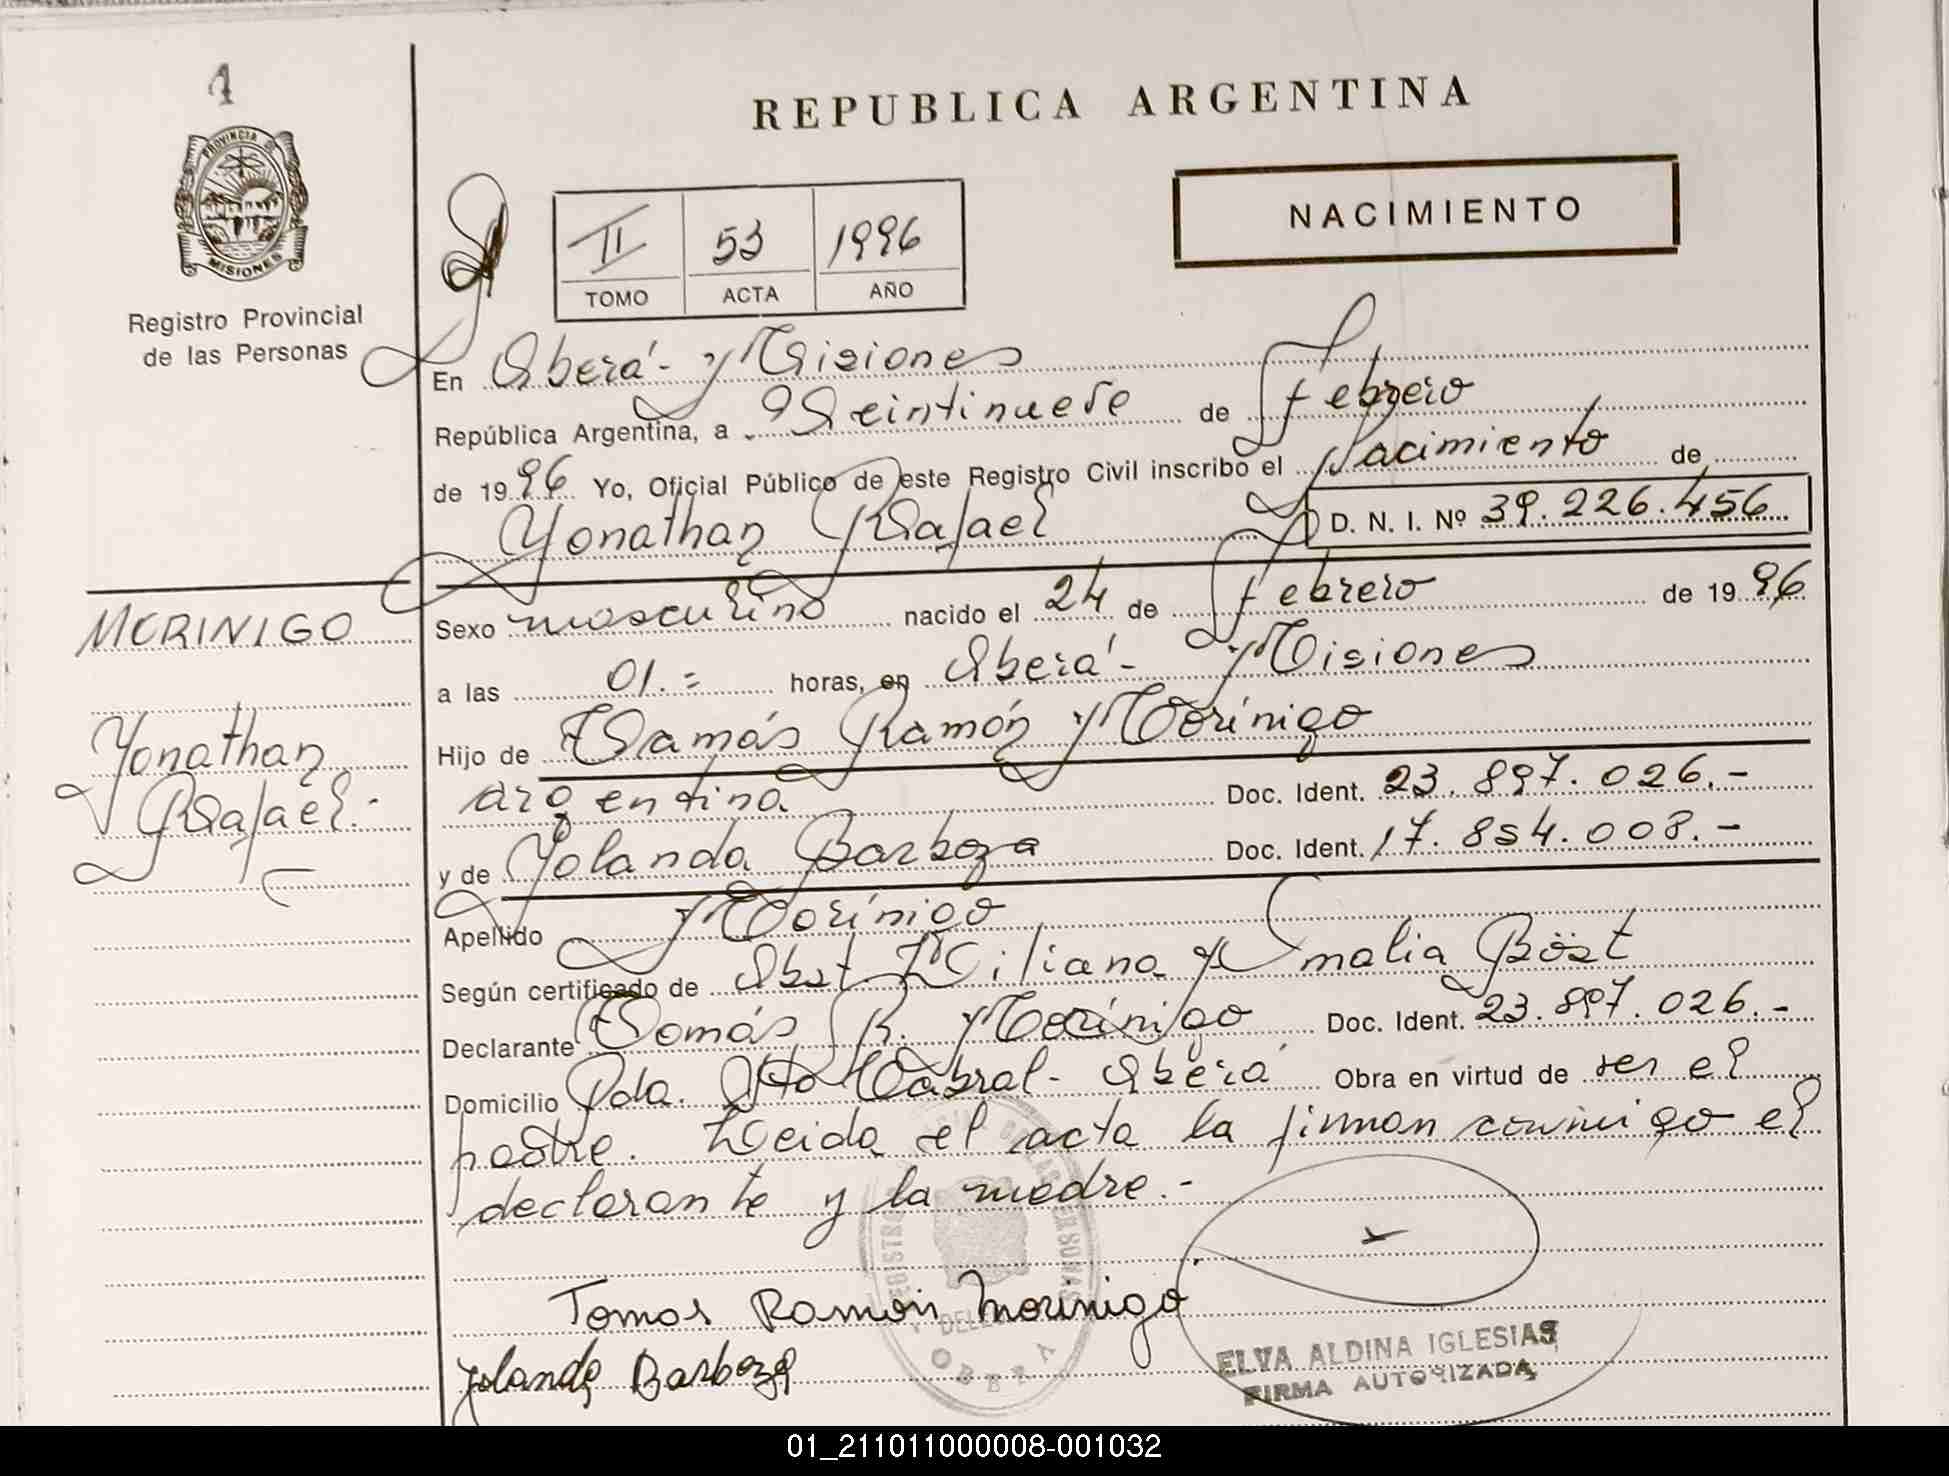 1
REPUBLICA ARGENTINA
PROVINCIA DE
MISIONES
Registro Provincial
de las Personas
II 53 1996
TOMO ACTA AÑO
NACIMIENTO
En Oberá - Misiones
República Argentina, a Veintinueve de Febrero
de 1996 Yo, Oficial Público de este Registro Civil inscribo el Nacimiento de
Yonathan Rafael D. N. I. Nº 39.226.456
MORINIGO
Yonathan
Rafael.-
Sexo masculino nacido el 24 de Febrero de 1996
a las 01.= horas, en Oberá - Misiones
Hijo de Tomás Ramón Morínigo
argentina Doc. Ident. 23.897.026.-
y de Yolanda Barboza Doc. Ident. 17.854.008.-
Apellido Morínigo
Según certificado de Obst Liliana Amalia Böst
Declarante Tomás R. Morínigo Doc. Ident. 23.897.026.-
Domicilio Pda. Sto Cabral - Oberá Obra en virtud de ser el
padre. Leida el acta la firman conmigo el
declarante y la madre.-
Tomas Ramon Morinigo
Yolanda Barboza
OBERA
ELVA ALDINA IGLESIAS
FIRMA AUTORIZADA
01_211011000008-001032